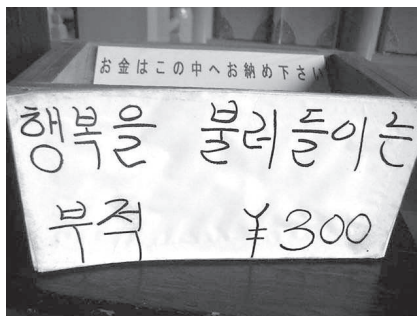 お金はこの中へお納め下さい
행복을 불러들이는
부적 ¥300